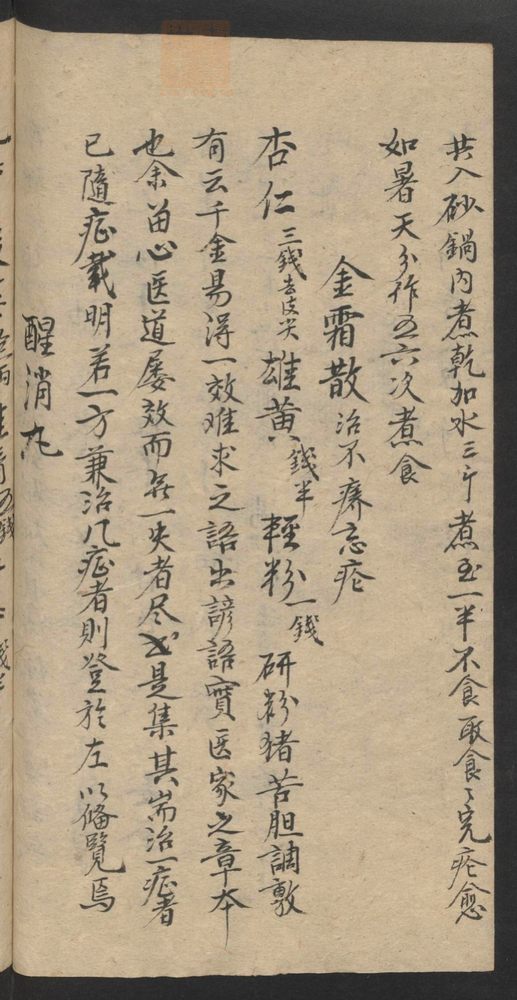 共入砂鍋內煮乾加水三斤煮至一半不食取食了完疮愈
如暑天分作五六次煮食
金霜散治不痒忘疮
杏仁三錢去皮尖雄黃錢半輕粉一錢研粉猪苦胆調敷
有云千金易得一效难求之語出諺語實医家之章本
也余畄心医道屡效而无一失者尽是集其耑治一症者
已隨症載明若一方兼治几症者則登於左以俻覽焉
醒消丸